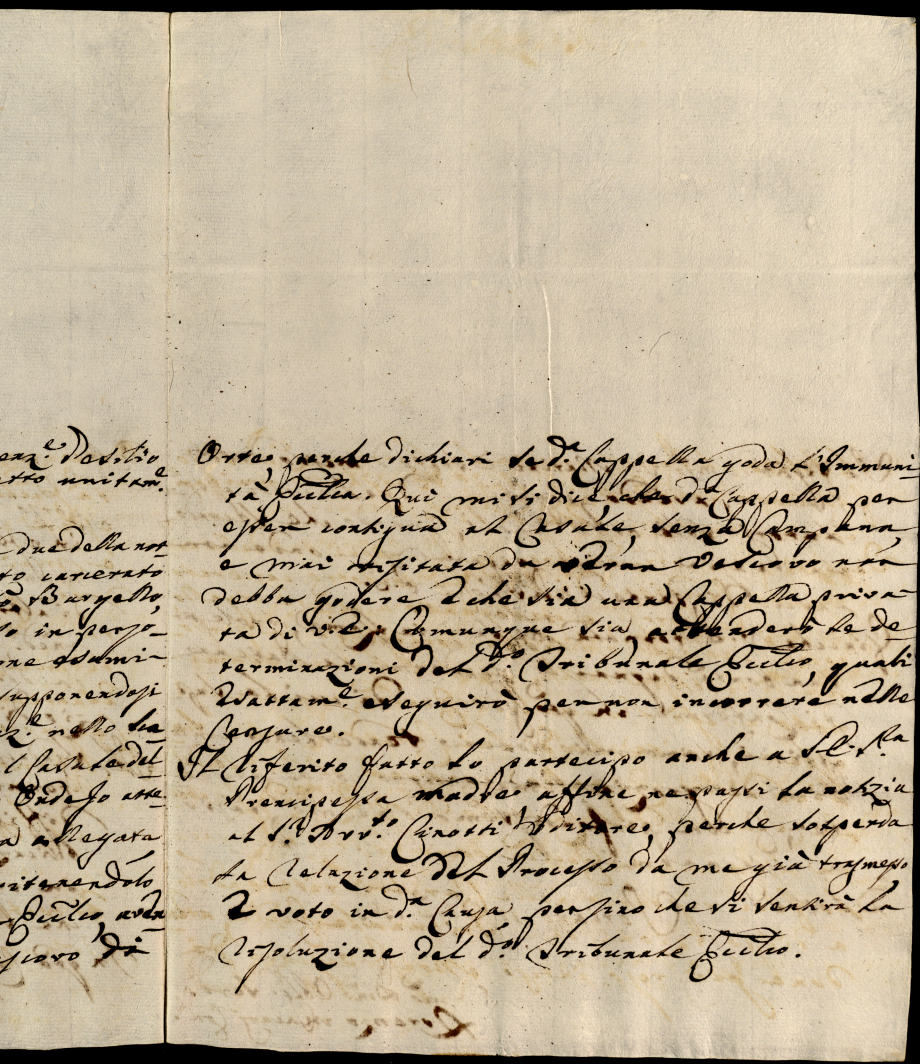 enz.e Desilio
etto unitam.e
e due della not-
to carcerato
Bargello,
so in perso-
one esami-
supponendosi
z.e nello sta
l Casale del-
Onde Io atte-
a allegata
ritenendolo
Eccl.co, aven-
scovo di
Orte, perche dichiari se d.a Cappella goda l'Immuni-
tà Eccl.ca. Qui mi si dice, che d.a Cappella per
esser contigua al Casale, senza Campana,
e mai visitata da verun Vescovo non
debba godere, e che sia una Cappella priva-
ta di V.E. Comunque sia attenderò le de-
terminazioni del d.o Tribunale Eccl.co, quali
esattam.e eseguirò per non incorrere nelle
Censure.
Il riferito fatto lo partecipo anche a S.E. la
Prencipessa Madre affine ne passi la notizia
al S.r Avv.to Cinotti Uditore, perche sospenda
la relazione del Processo da me già trasmesso
e voto in d.a Causa persino che si sentirà la
risoluzione del d.o Tribunale Eccl.co.